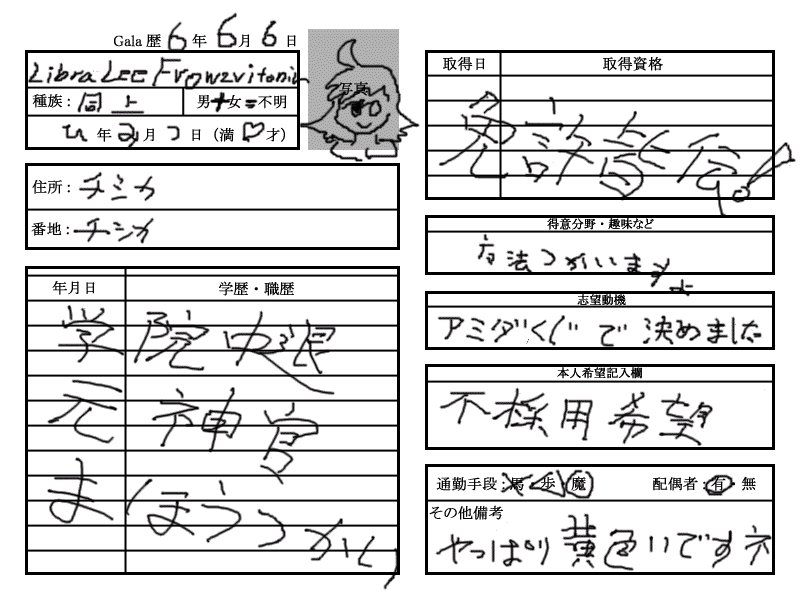 Gala 歴 6 年 6 月 6 日
Libra LEE Frowzvitonia
写真
種族：同上
男＋女＝不明
ひ 年 み 月 つ 日（満 ♡ 才）
住所：チミカ
番地：チシカ
年月日 学歴・職歴
学院中退
元神官
まほうつかい
取得日 取得資格
免許皆伝！
得意分野・趣味など
方法つかいますよ
志望動機
アミダくじで決めました
本人希望記入欄
不採用希望
通勤手段：馬・歩・魔
配偶者：有・無
その他備考
やっぱり黄色いですネ